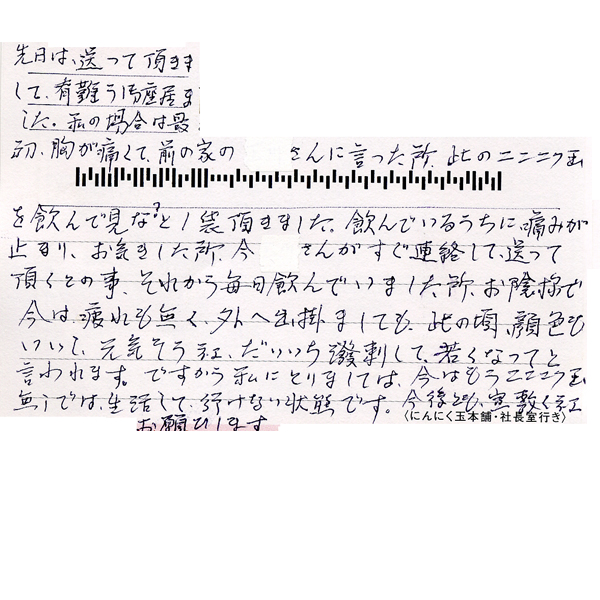 先日は、送って頂きま
して、有難う御座居ま
した。私の場合は最
初、胸が痛くて、前の家の さんに言った所、此のニンニク玉
を飲んで見な?と1袋頂きました。飲んでいるうちに、痛みが
止まり、お気きした所、今 さんがすぐ連絡して、送って
頂くとの事、それから毎日飲んでいました所、お陰様で
今は、疲れも無く、外へ出掛ましても、此の頃、顔色も
いいし、元気そうネ、だいいち溌剌して、若くなってと
言われます。ですから私にとりましては、今はもうニンニク玉
無しでは、生活して、行けない状態です。今後とも、宜敷くネ
(にんにく玉本舗・社長室行き)
お願いします